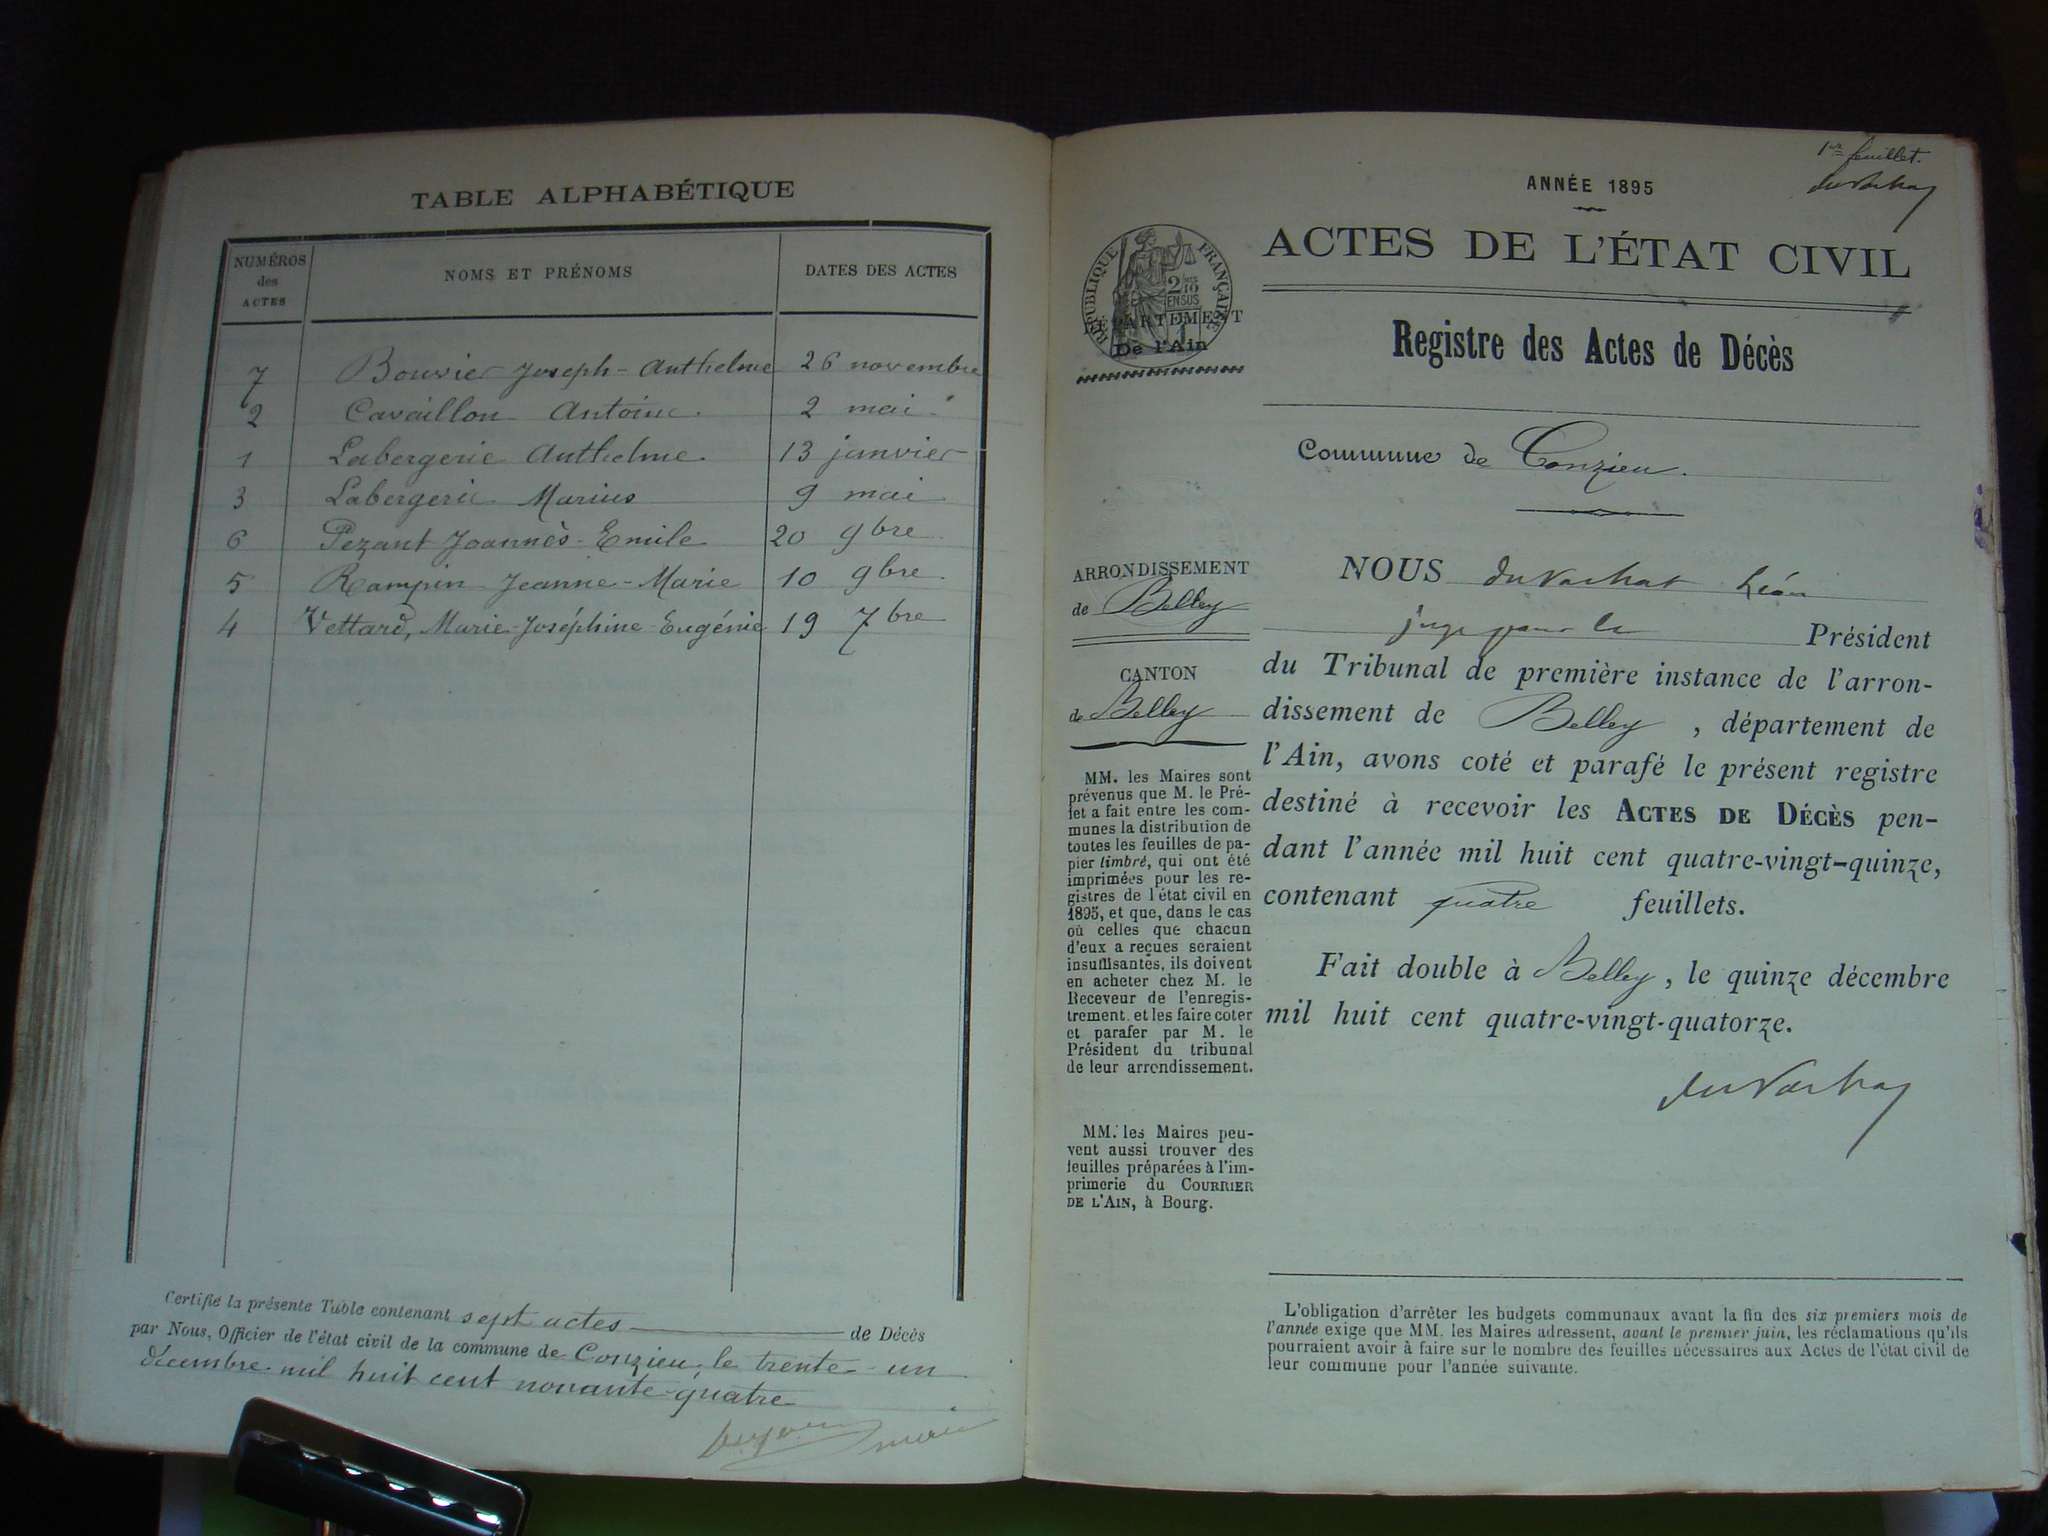 TABLE ALPHABÉTIQUE
NUMÉROS
des
ACTES
NOMS ET PRÉNOMS
DATES DES ACTES
7 Bouvier Joseph-Anthelme 26 novembre
2 Cavaillon Antoine. 2 mai
1 Labergerie Anthelme. 13 janvier
3 Labergerie Marius 9 mai
6 Pezant Joannès-Emile 20 9bre
5 Rampin Jeanne-Marie 10 9bre
4 Vettard, Marie-Joséphine-Eugénie 19 7bre
Certifié la présente Table contenant sept actes de Décès
par Nous, Officier de l'état civil de la commune de Conzieu, le trente-un
décembre mil huit cent nonante-quatre
maire
1er feuillet.
ANNÉE 1895
ACTES DE L'ÉTAT CIVIL
RÉPUBLIQUE FRANÇAISE
2/10
EN SUS
DÉPARTEMENT
De l'Ain
Registre des Actes de Décès
Commune de Conzieu.
ARRONDISSEMENT
de Belley
CANTON
de Belley
MM. les Maires sont
prévenus que M. le Pré-
fet a fait entre les com-
munes la distribution de
toutes les feuilles de pa-
pier timbré, qui ont été
imprimées pour les re-
gistres de l'état civil en
1895, et que, dans le cas
où celles que chacun
d'eux a reçues seraient
insuffisantes, ils doivent
en acheter chez M. le
Receveur de l'enregis-
trement. et les faire coter
et parafer par M. le
Président du tribunal
de leur arrondissement.
MM. les Maires peu-
vent aussi trouver des
feuilles préparées à l'im-
primerie du COURRIER
DE L'AIN, à Bourg.
NOUS du Vachat Léon
juge pour le Président
du Tribunal de première instance de l'arron-
dissement de Belley, département de
l'Ain, avons coté et parafé le présent registre
destiné à recevoir les ACTES DE DÉCÈS pen-
dant l'année mil huit cent quatre-vingt-quinze,
contenant quatre feuillets.
Fait double à Belley, le quinze décembre
mil huit cent quatre-vingt-quatorze.
du Vachat
L'obligation d'arrêter les budgets communaux avant la fin des six premiers mois de
l'année exige que MM. les Maires adressent, avant le premier juin, les réclamations qu'ils
pourraient avoir à faire sur le nombre des feuilles nécessaires aux Actes de l'état civil de
leur commune pour l'année suivante.